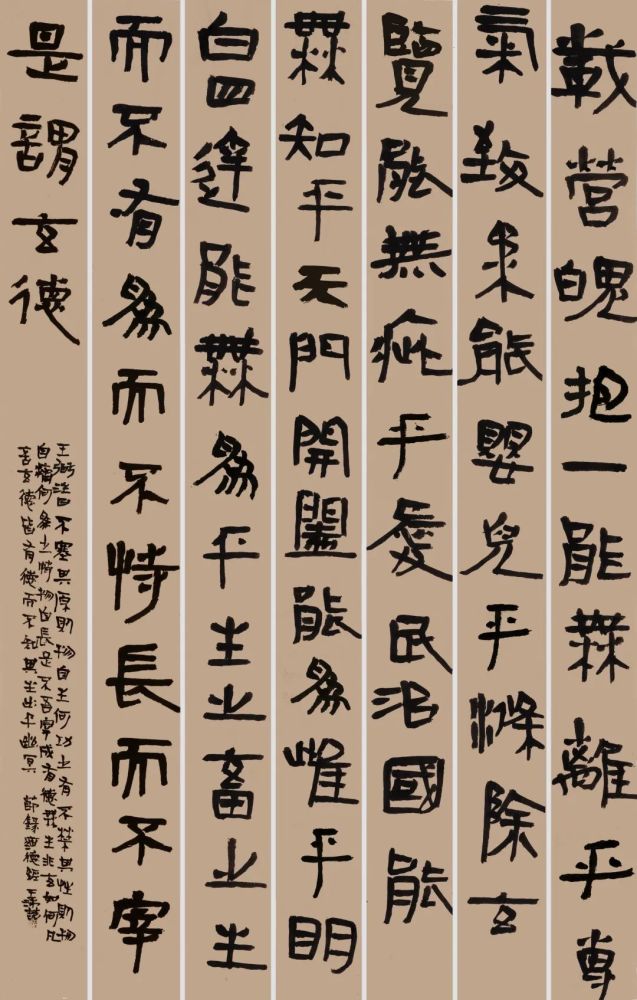 載營魄抱一能無離乎專
氣致柔能嬰兒乎滌除玄
覽能無疵乎愛民治國能
無知乎天門開闔能為雌乎明
白四達能無為乎生之畜之生
而不有為而不恃長而不宰
是謂玄德
王弼注曰不塞其原則物自生何功之有不禁其性則物
自濟何為之恃物自長足不吾宰成有德無主非玄如何凡
言玄德皆有德而不知其主出乎幽冥 節錄道德經